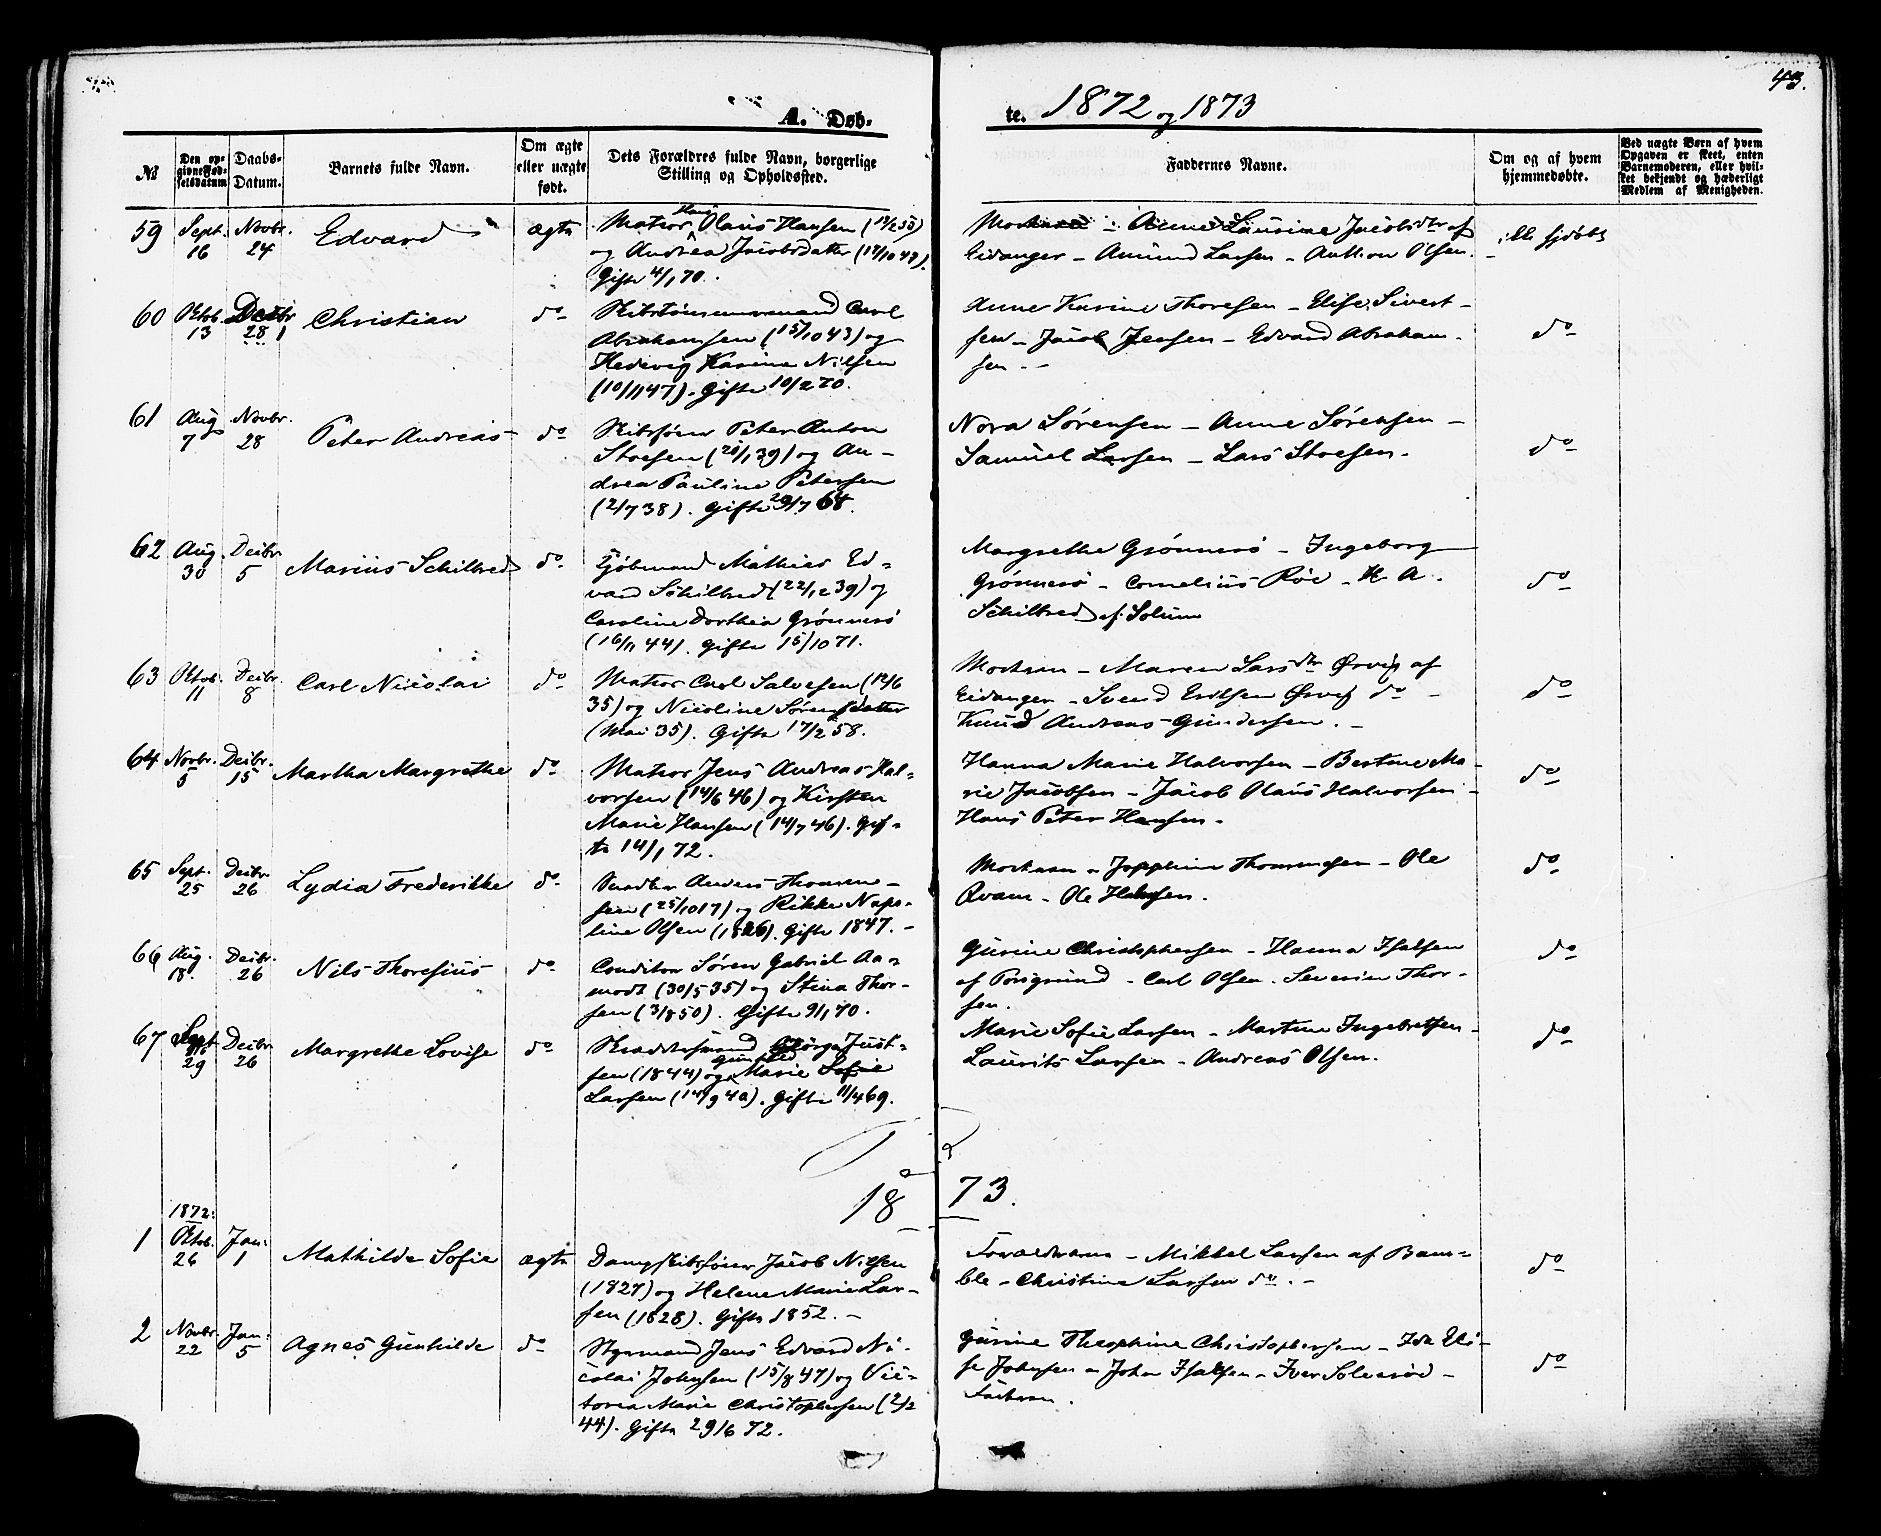 43.
A. Døb-
te. 1872 og 1873
№
Den op-
givne Fød-
selsdatum
Daabs-
Datum.
Barnets fulde Navn.
Om ægte
eller uægte
født.
Dets Forældres fulde Navn, borgerlige
Stilling og Opholdssted.
Faddernes Navne.
Om og af hvem
hjemmedøbte.
Ved uægte Børn af hvem
Opgaven er skeet, enten
Barnemoderen, eller hvil-
ket bekjendt og hæderligt
Medlem af Menigheden.
59 Sept. 16 Novbr. 24 Edvard ægte
Matros Olaus Hansen
og Andrea Jacobsdatter (17/10 49).
Gifte 4/1 70.
Laurine Jacobsdtr af
Eidanger – Amund Larsen – Olsen.
ikke hjdøbt
60 Oktob. 13 Decbr. 1 Christian do
Skibstømmermand Carl
Abrahamsen (15/10 43) og
Hedevig Karine Nilsen
(10/11 47). Gifte 10/2 70.
Anne Karine Thoresen – Elise Sivert-
sen – Jacob Jensen – Edvard Abraham-
sen. –
do
61 Aug 7 Novbr. 28 Peter Andreas do
Skibsfører Peter Anton
Stoesen (28/1 39) og An-
drea Pauline Petersen
(2/7 38). Gifte 29/7 68.
Nora Sørensen – Anne Sørensen –
Samuel Larsen – Lars Stoesen.
do
62 Aug. 30 Decbr. 5 Marius Schilbred do
Kjøbmand Mathias Ed-
vard Schilbred (22/12 39) og
Caroline Dorthea Grønnerø
(16/11 44). Gifte 15/10 71.
Margrethe Grønnerø – Ingeborg
Grønnerø – Cornelius Röe – H. A.
Schilbred af Solum
do
63 Oktob. 11 Decbr. 8 Carl Nicolai do
Matros Carl Salvesen (12/6
35) og Nicoline Sørensdatter
(Mai 35). Gifte 17/2 58.
Modrem – Maren Larsdtr Ørvig af
Eidanger – Svend Erttsen Ørvig do –
Knud Andreas Gundersen. –
do
64 Novbr. 5 Decbr. 15 Martha Margrethe do
Matros Jens Andreas Hal-
vorsen (14/6 46) og Kirsten
Marie Hansen (14/7 46). Gif-
te 14/1 72.
Hanna Marie Halvorsen – Bertine Ma-
rie Jacobsen – Jacob Olaus Halvorsen –
Hans Peter Hansen.
do
65 Sept. 25 Decbr 26 Lydia Frederikke do
Snedker Anders Thomme-
sen (25/10 17) og Rikke Napo-
line Olsen (1826). Gifte 1847. –
Josephine Thommesen – Ole
Qvam – Ole Hansen.
do
66 Aug. 18. Decbr. 26 Nils Thoresius do
Conditor Søren Gabriel Aa-
modt (30/5 35) og Stina Thor-
sen (3/8 50). Gifte 9/1 70.
Gurine Christophersen – Hanna Isaksen
af Porsgrund – Carl Olsen. Severin Thor-
sen.
do
67 Sept 29 Decbr 26 Margrethe Lovise do
Gunhild
Jørgen Just-
sen (1844) og Marie Sofie
Larsen (14/9 40). Gifte 11/4 69.
Marie Sofie Larsen – Martine Ingebretsen –
Laurits Larsen – Andreas Olsen.
do
18 73.
1872:
1 Oktob. 26 Jan: 1 Mathilde Sofie ægte
Dampskibsfører Jacob Nilsen
(1827) og Helene Marie Lar-
sen (1828). Gifte 1852. –
Forældrene – Mikkel Larsen af Bam-
ble – Christine Larsen do. –
do
2 Novbr. 22 Jan: 5 Agnes Gunhilde do
Styrmand Jens Edvard Ni-
colai Johnsen (15/8 47) og Vic-
toria Marie Christophersen (2/2
44). Gifte 29/6 72.
Gurine Theophine Christophersen – Ida Eli-
se Johnsen – John Isaksen – Iver Solverød –
Faderen.
do